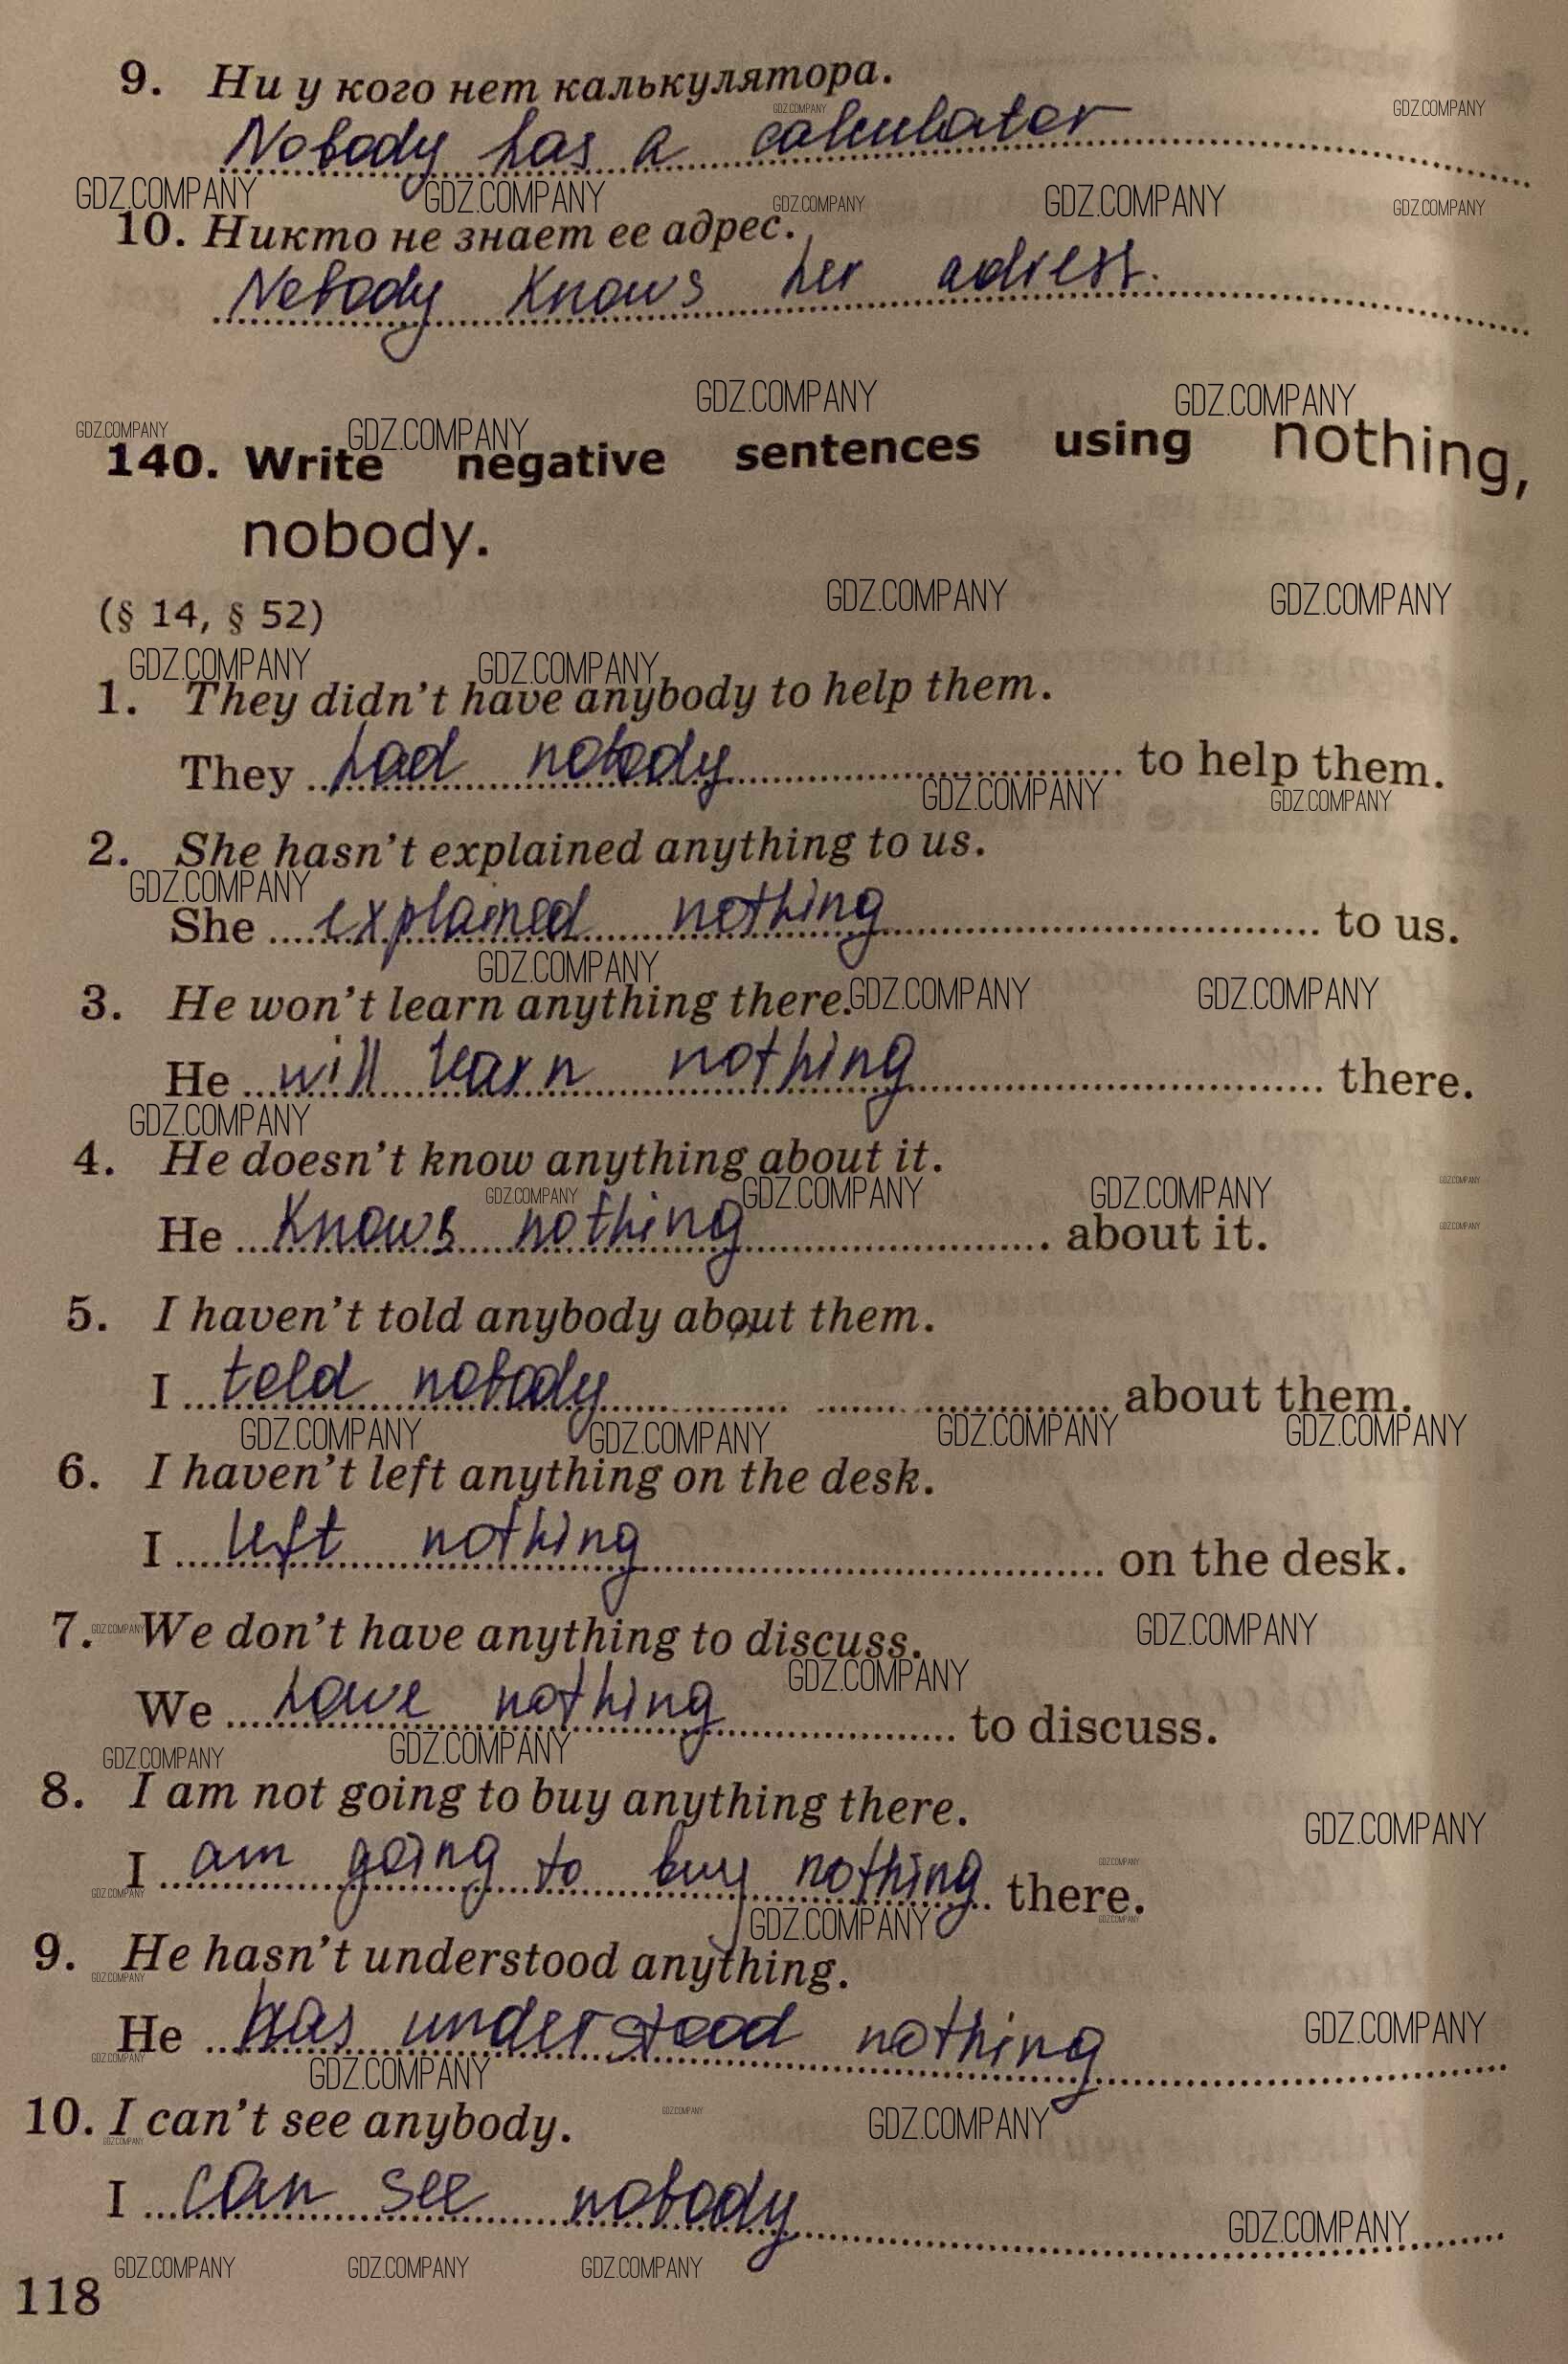 9. Ни у кого нет калькулятора.
Nobody has a calculator
10. Никто не знает ее адрес.
Nobody knows her adress.
140. Write negative sentences using nothing,
nobody.
(§ 14, § 52)
1. They didn't have anybody to help them.
They had nobody to help them.
2. She hasn't explained anything to us.
She explained nothing to us.
3. He won't learn anything there.
He will learn nothing there.
4. He doesn't know anything about it.
He knows nothing about it.
5. I haven't told anybody about them.
I told nobody about them.
6. I haven't left anything on the desk.
I left nothing on the desk.
7. We don't have anything to discuss.
We have nothing to discuss.
8. I am not going to buy anything there.
I am going to buy nothing there.
9. He hasn't understood anything.
He has understood nothing
10. I can't see anybody.
I can see nobody
118
GDZ.COMPANY